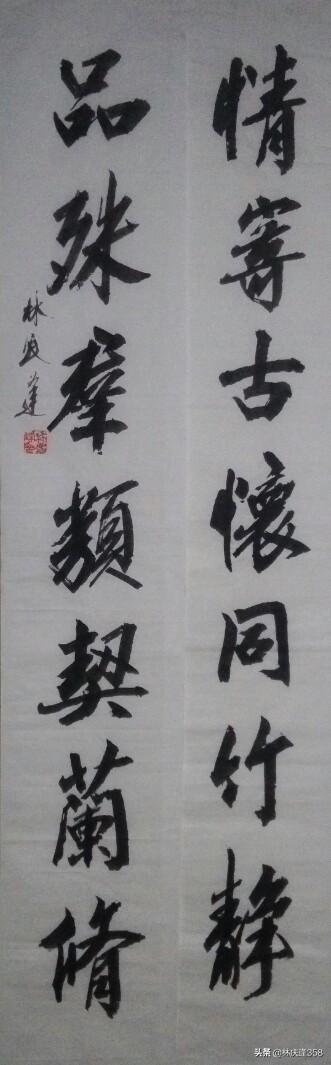 情寄古懷同竹靜
品殊羣類契蘭脩
林
头条 @林庆逢358